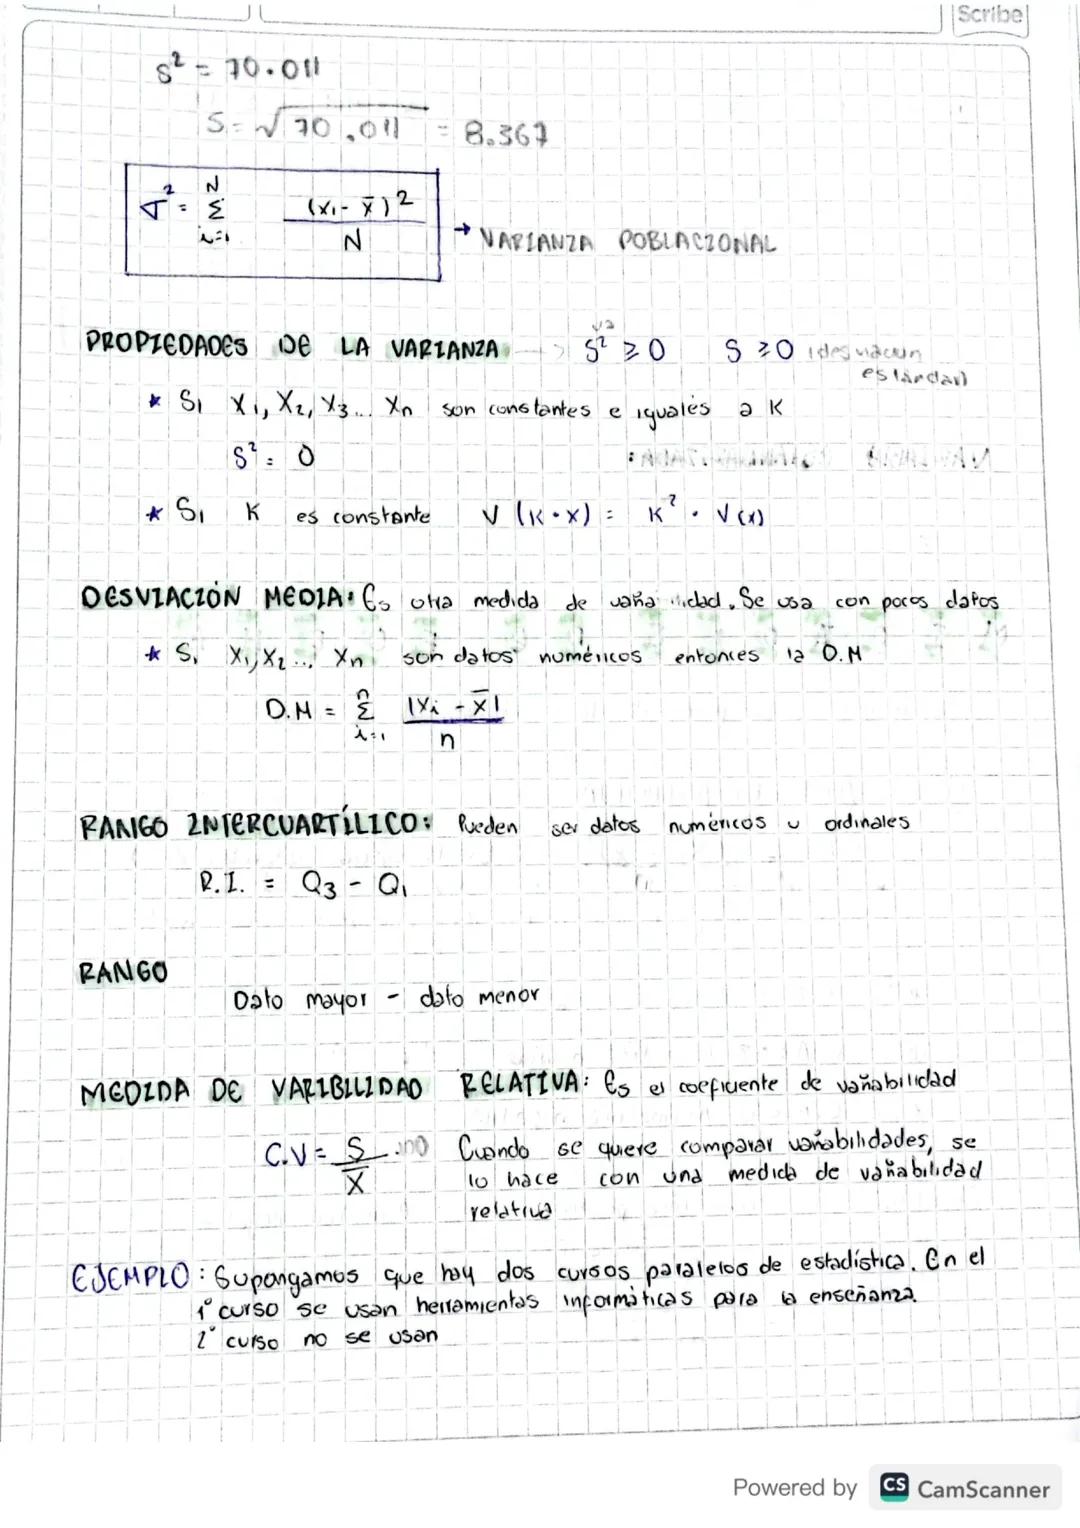 Scribe
S² = 70.011
S = √70.011 = 8.367
σ² = Σ (xi - x̄)²
i=1 N
→ VARIANZA POBLACIONAL
PROPIEDADES DE LA VARIANZA → S² ≥ 0 S ≥ 0 (desviación
estándar)
* Si X₁, X₂, X₃... Xn son constantes e iguales a K
S² = 0
* Si K es constante V (K·x) = K² · V(x)
DESVIACIÓN MEDIA: Es otra medida de variabilidad. Se usa con pocos datos
* Si X₁, X₂ ... Xn son datos numéricos entonces la D.M
D.M = Σ |Xi - X̄|
i=1 n
RANGO INTERCUARTÍLICO: Pueden ser datos numéricos u ordinales
R.I. = Q₃ - Q₁
RANGO
Dato mayor - dato menor
MEDIDA DE VARIBILIDAD RELATIVA: Es el coeficiente de variabilidad
C.V = S/X̄ .100 Cuando se quiere comparar variabilidades, se
lo hace con una medida de variabilidad
relativa
EJEMPLO: Supongamos que hay dos cursos paralelos de estadística. En el
1° curso se usan herramientas informáticas para la enseñanza.
2° curso no se usan
Powered by CS CamScanner